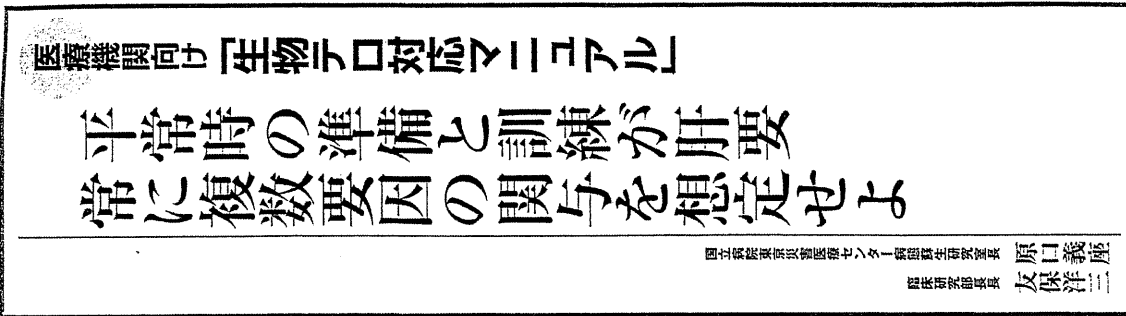 医療機関向け「生物テロ対応マニュアル」
平常時の準備と訓練が肝要
常に複数要因の関与を想定せよ
国立病院東京災害医療センター病態蘇生研究室長 原口義座
臨床研究部長 友保洋三